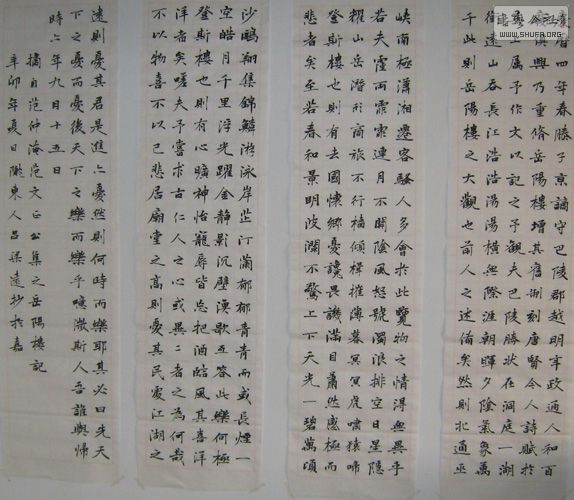 慶曆四年春滕子京謫守巴陵郡越明年政通人和百
廢具興乃重修岳陽樓增其舊制刻唐賢今人詩賦於
其上屬予作文以記之予觀夫巴陵勝狀在洞庭一湖
銜遠山吞長江浩浩湯湯橫無際涯朝暉夕陰氣象萬
千此則岳陽樓之大觀也前人之述備矣然則北通巫
峽南極瀟湘遷客騷人多會於此覽物之情得無異乎
若夫霪雨霏霏連月不開陰風怒號濁浪排空日星隱
耀山岳潛形商旅不行檣傾楫摧薄暮冥冥虎嘯猿啼
登斯樓也則有去國懷鄉憂讒畏譏滿目蕭然感極而
悲者矣至若春和景明波瀾不驚上下天光一碧萬頃
沙鷗翔集錦鱗游泳岸芷汀蘭郁郁青青而或長煙一
空皓月千里浮光躍金靜影沉璧漁歌互答此樂何極
登斯樓也則有心曠神怡寵辱皆忘把酒臨風其喜洋
洋者矣嗟夫予嘗求古仁人之心或異二者之為何哉
不以物喜不以己悲居廟堂之高則憂其民處江湖之
遠則憂其君是進亦憂然則何時而樂耶其必曰先天
下之憂而憂後天下之樂而樂乎噫微斯人吾誰與歸
時六年九月十五日
摘自范仲淹范文正公集之岳陽樓記
辛卯年夏日隴東人吕梁遠抄於嘉
WWW.SHUFA.ORG